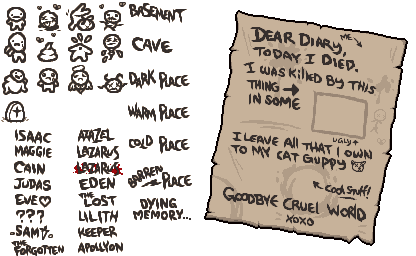 BASEMENT
CAVE
DARK PLACE
WARM PLACE
COLD PLACE
BARREN PLACE
DYING
MEMORY...
ISAAC
MAGGIE
CAIN
JUDAS
EVE♡
???
SAMS
THE
FORGOTTEN
AZAZEL
LAZARUS
LAZARUS
EDEN
THE
LOST
LILITH
KEEPER
APOLLYON
DEAR DIARY,
ME
TODAY I DIED.
I WAS KILLED BY THIS
THING →
IN SOME
UGLY↑
I LEAVE ALL THAT I OWN
TO MY CAT GUPPY
↖ COOL STUFF!
GOODBYE CRUEL WORLD
XOXO